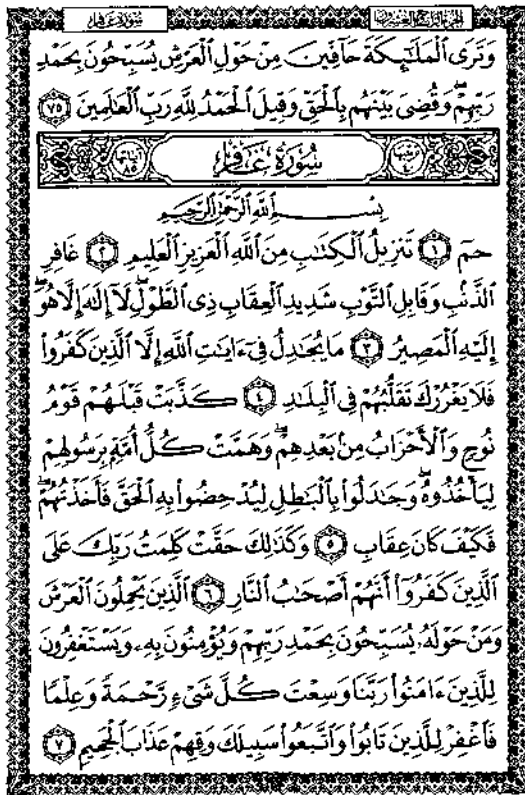 سورة غافر
الجزء الرابع والعشرون
وَتَرَى ٱلْمَلَٰٓئِكَةَ حَآفِّينَ مِنْ حَوْلِ ٱلْعَرْشِ يُسَبِّحُونَ بِحَمْدِ
رَبِّهِمْۖ وَقُضِىَ بَيْنَهُم بِٱلْحَقِّ وَقِيلَ ٱلْحَمْدُ لِلَّهِ رَبِّ ٱلْعَٰلَمِينَ ٧٥
سُورَةُ غَافِرٍ
آياتها ٨٥
بِسْمِ ٱللَّهِ ٱلرَّحْمَٰنِ ٱلرَّحِيمِ
حمٓ ١ تَنزِيلُ ٱلْكِتَٰبِ مِنَ ٱللَّهِ ٱلْعَزِيزِ ٱلْعَلِيمِ ٢ غَافِرِ
ٱلذَّنۢبِ وَقَابِلِ ٱلتَّوْبِ شَدِيدِ ٱلْعِقَابِ ذِى ٱلطَّوْلِۖ لَآ إِلَٰهَ إِلَّا هُوَۖ
إِلَيْهِ ٱلْمَصِيرُ ٣ مَا يُجَٰدِلُ فِىٓ ءَايَٰتِ ٱللَّهِ إِلَّا ٱلَّذِينَ كَفَرُوا۟
فَلَا يَغْرُرْكَ تَقَلُّبُهُمْ فِى ٱلْبِلَٰدِ ٤ كَذَّبَتْ قَبْلَهُمْ قَوْمُ
نُوحٍ وَٱلْأَحْزَابُ مِنۢ بَعْدِهِمْۖ وَهَمَّتْ كُلُّ أُمَّةٍۭ بِرَسُولِهِمْ
لِيَأْخُذُوهُۖ وَجَٰدَلُوا۟ بِٱلْبَٰطِلِ لِيُدْحِضُوا۟ بِهِ ٱلْحَقَّ فَأَخَذْتُهُمْۖ
فَكَيْفَ كَانَ عِقَابِ ٥ وَكَذَٰلِكَ حَقَّتْ كَلِمَتُ رَبِّكَ عَلَى
ٱلَّذِينَ كَفَرُوٓا۟ أَنَّهُمْ أَصْحَٰبُ ٱلنَّارِ ٦ ٱلَّذِينَ يَحْمِلُونَ ٱلْعَرْشَ
وَمَنْ حَوْلَهُۥ يُسَبِّحُونَ بِحَمْدِ رَبِّهِمْ وَيُؤْمِنُونَ بِهِۦ وَيَسْتَغْفِرُونَ
لِلَّذِينَ ءَامَنُوا۟ رَبَّنَا وَسِعْتَ كُلَّ شَىْءٍ رَّحْمَةً وَعِلْمًا
فَٱغْفِرْ لِلَّذِينَ تَابُوا۟ وَٱتَّبَعُوا۟ سَبِيلَكَ وَقِهِمْ عَذَابَ ٱلْجَحِيمِ ٧